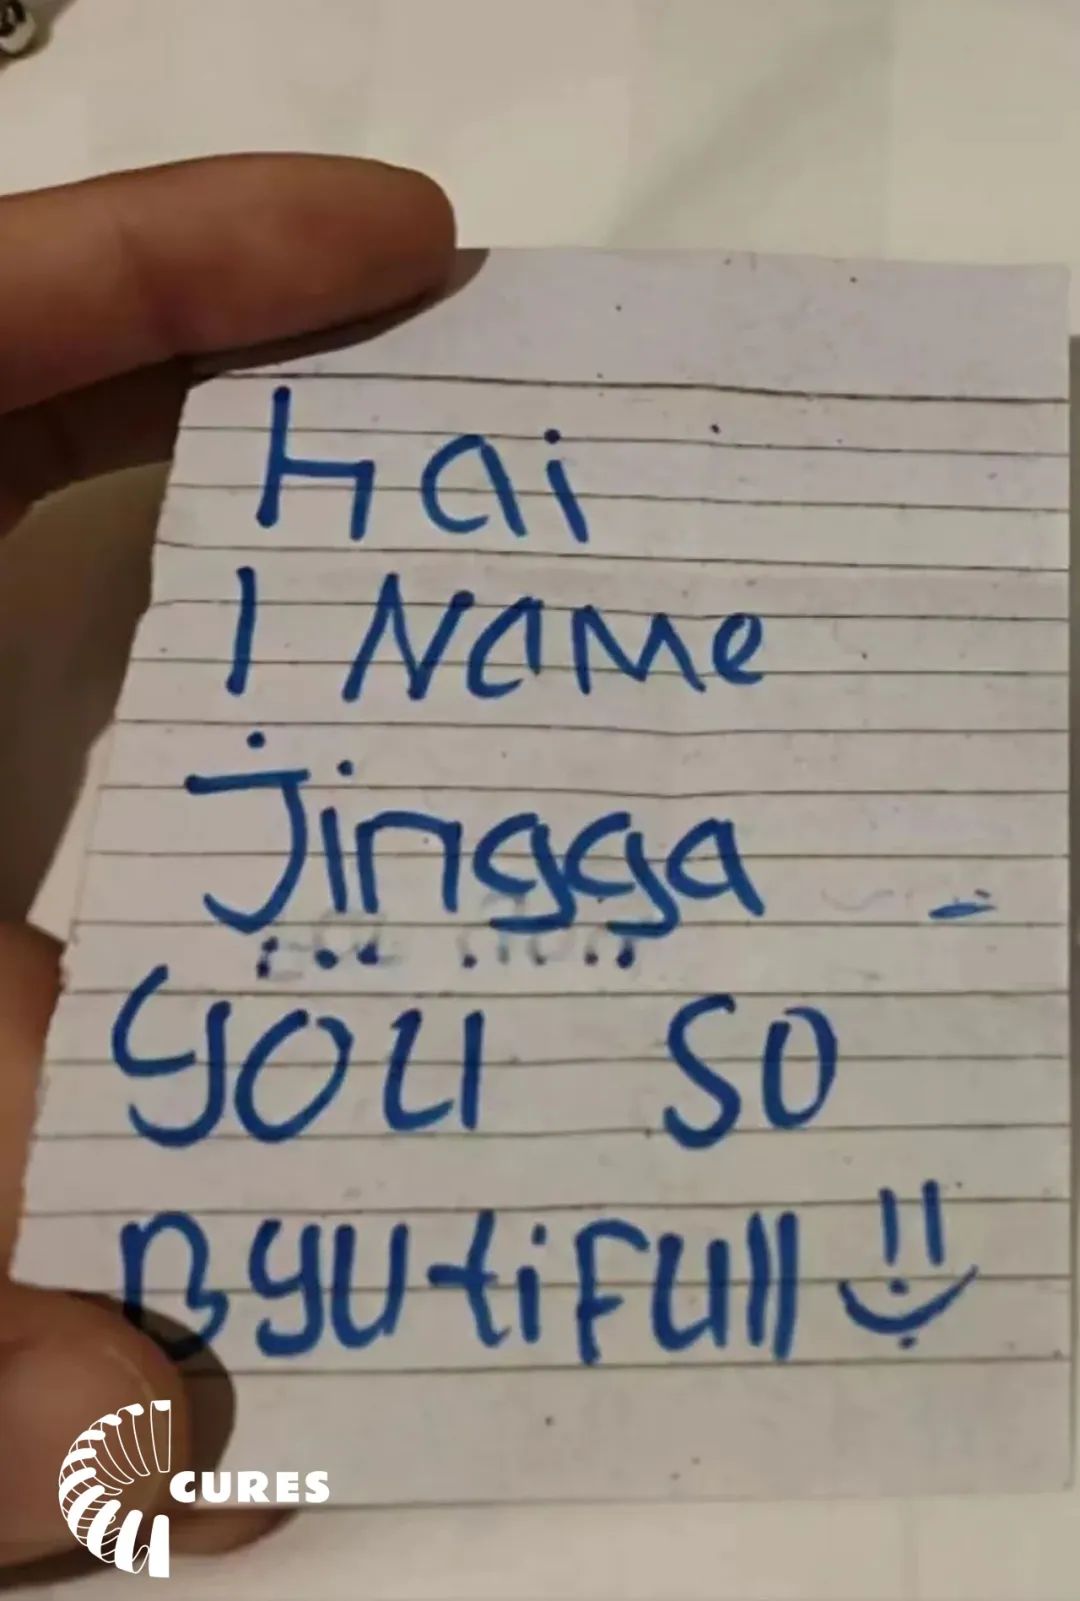 Hai
I Name
Jingga
you so
Byutifull
CURES